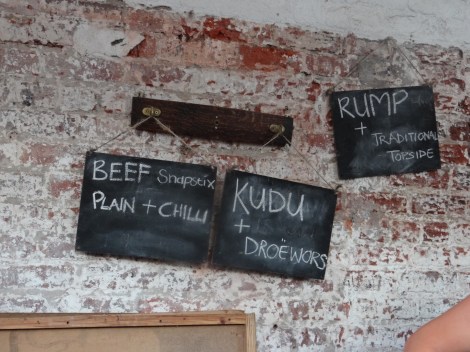 BEEF Snapstix
PLAIN + CHILLI
KUDU
+
DROËWORS
RUMP
+ TRADITIONAL
TOPSIDE